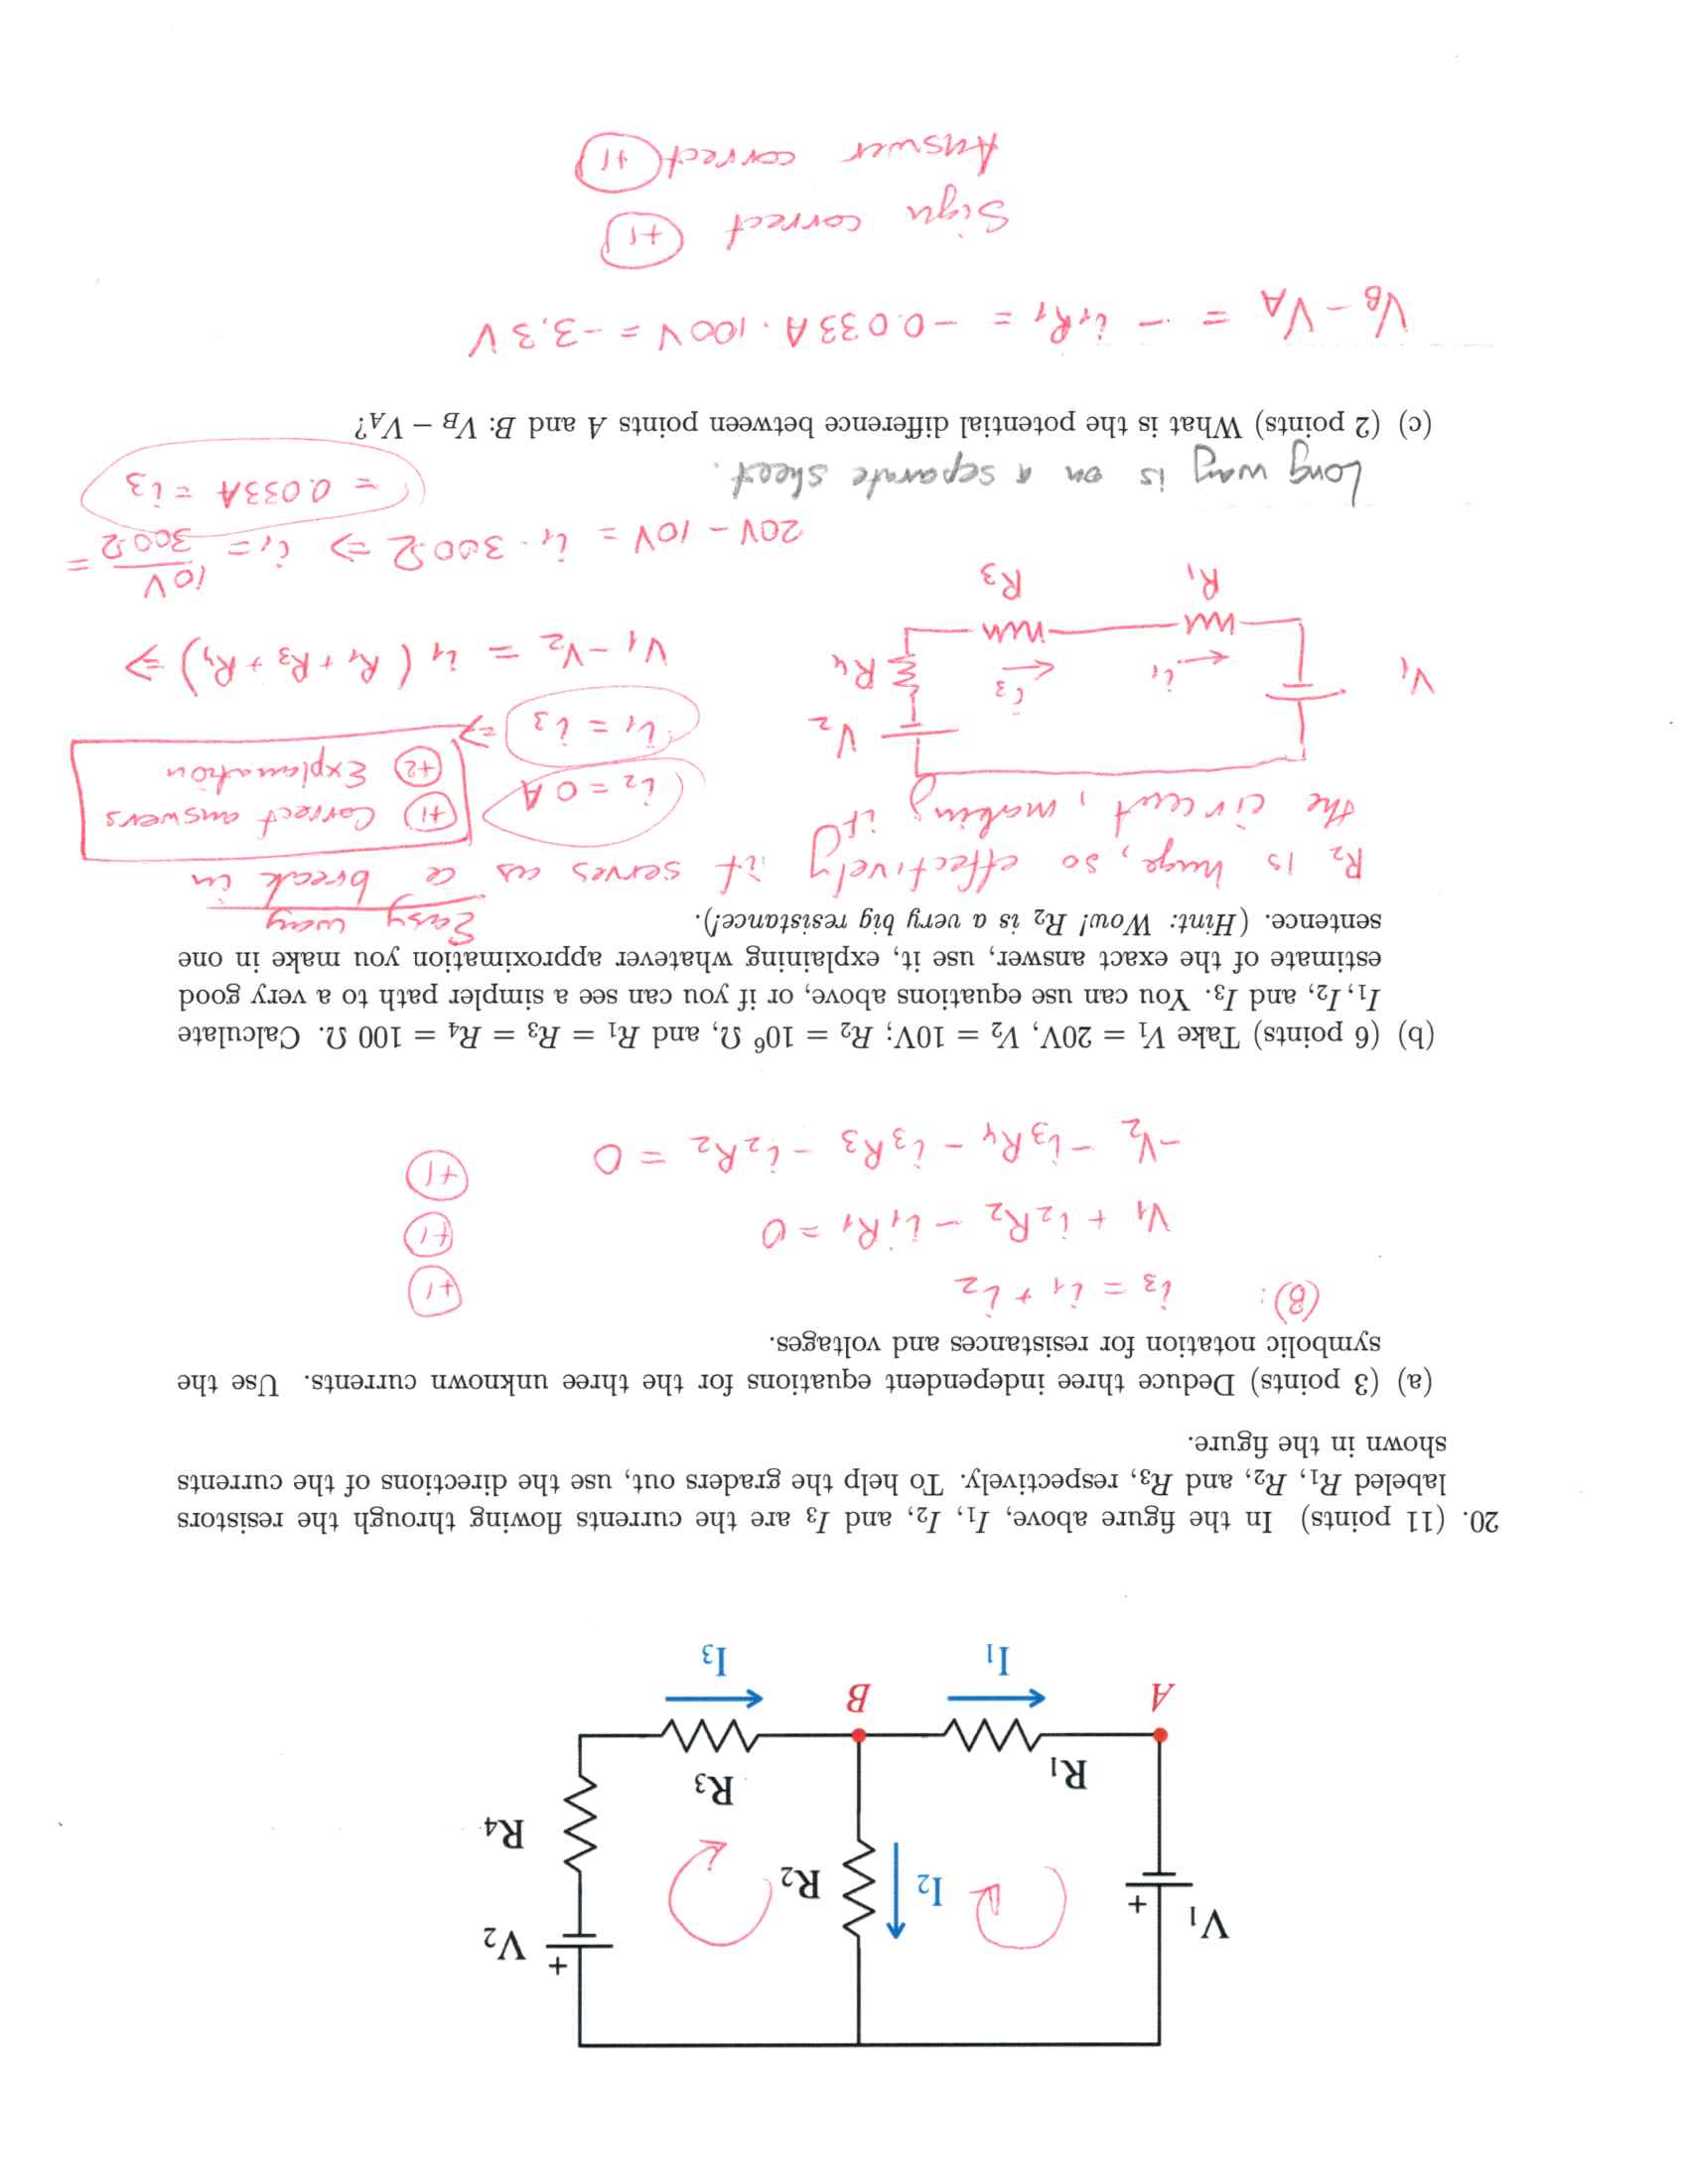 +
V2
V1
+
I2
R2
R4
R3
R1
A
B
I1
I3
20. (11 points) In the figure above, I1, I2, and I3 are the currents flowing through the resistors
labeled R1, R2, and R3, respectively. To help the graders out, use the directions of the currents
shown in the figure.
(a) (3 points) Deduce three independent equations for the three unknown currents. Use the
symbolic notation for resistances and voltages.
(B): i3 = i1 + i2 +1
V1 + i2R2 - i1R1 = 0 +1
-V2 - i3R4 - i3R3 - i2R2 = 0 +1
(b) (6 points) Take V1 = 20V, V2 = 10V; R2 = 10^6 Ω, and R1 = R3 = R4 = 100 Ω. Calculate
I1, I2, and I3. You can use equations above, or if you can see a simpler path to a very good
estimate of the exact answer, use it, explaining whatever approximation you make in one
sentence. (Hint: Wow! R2 is a very big resistance!).
Easy way
R2 is huge, so effectively it serves as a break in
the circuit, making it
i2 = 0 A
+1 Correct answers
+2 Explanation
i1 = i3 ⇒
V2
V1
i1
i3
R4
R1
R3
V1 - V2 = i1 (R1 + R3 + R4) ⇒
20V - 10V = i1 · 300Ω ⇒ i1 = 10V/300Ω =
= 0.033A = i3
Long way is on a separate sheet.
(c) (2 points) What is the potential difference between points A and B: VB − VA?
VB - VA = - i1R1 = -0.033A · 100V = -3.3 V
Sign correct +1
Answer correct +1